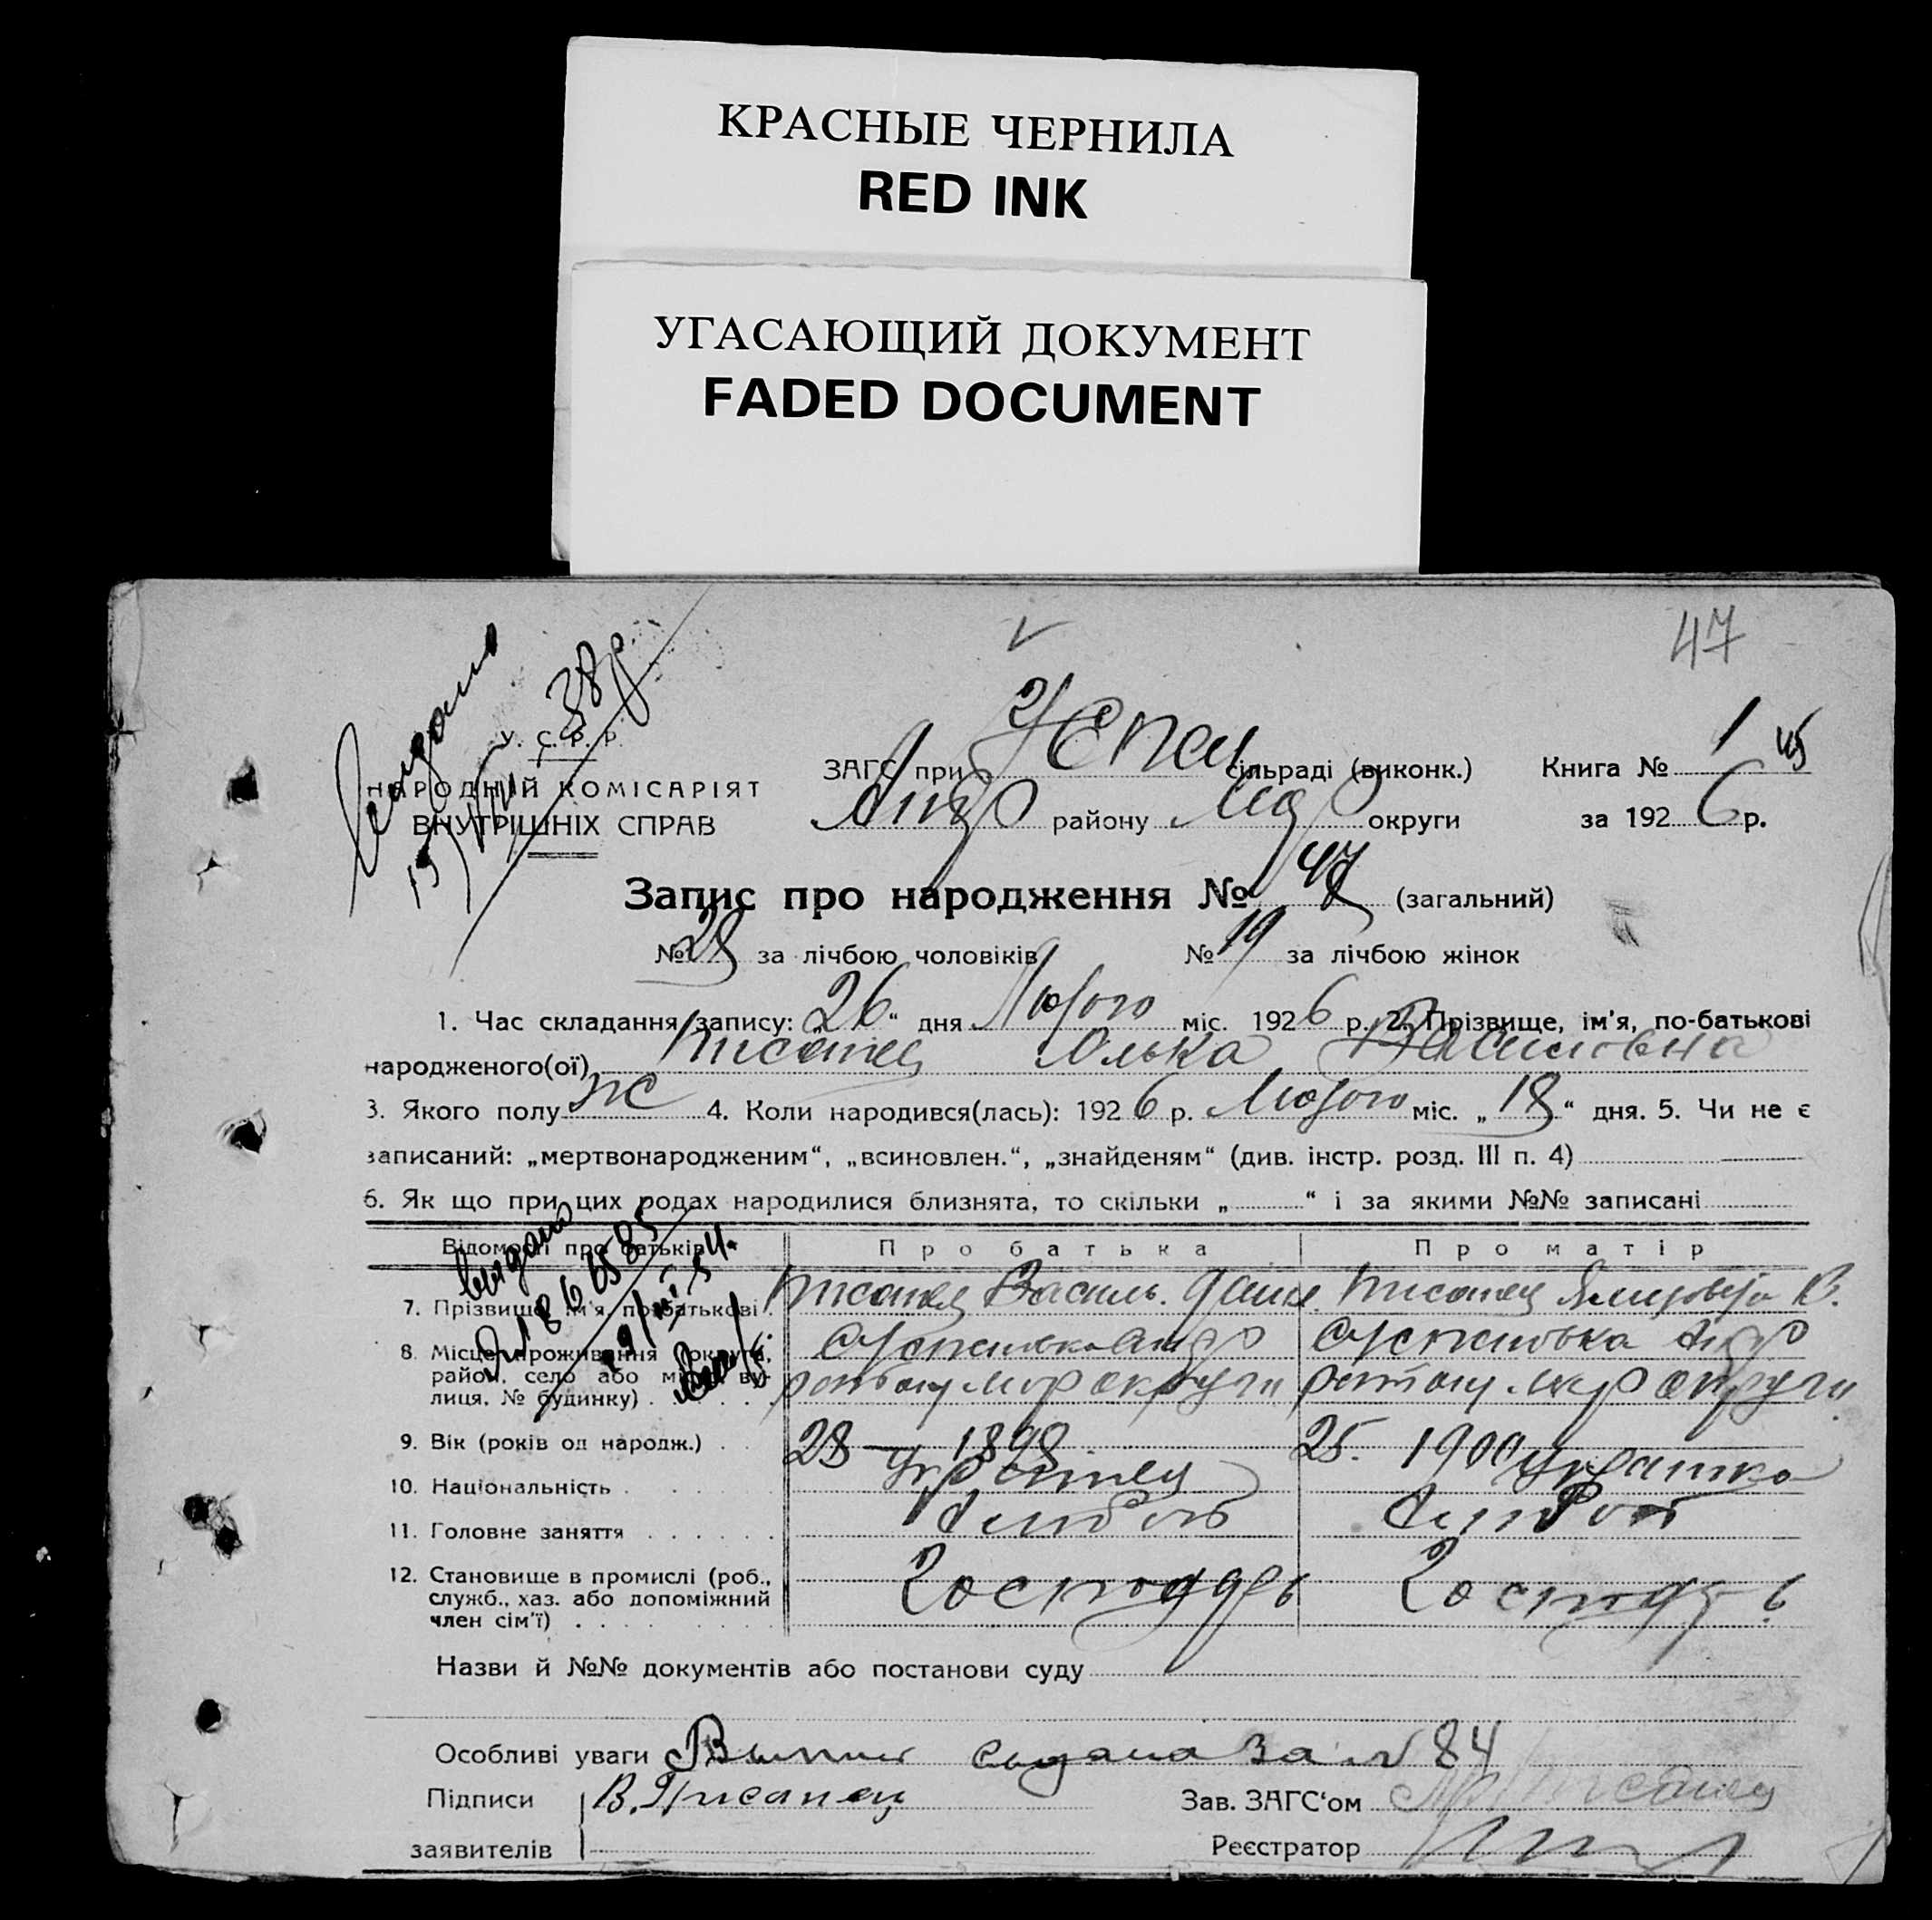 КРАСНЫЕ ЧЕРНИЛА
RED INK
УГАСАЮЩИЙ ДОКУМЕНТ
FADED DOCUMENT
47
У. С. Р. Р.
НАРОДНІЙ КОМІСАРІЯТ
ВНУТРІШНІХ СПРАВ
38р.
ЗАГС при сільраді (виконк.) Книга № 1
району округи за 1926 р.
Запис про народження № 47 (загальний)
№ 28 за лічбою чоловіків № 19 за лічбою жінок
1. Час складання запису: „26“ дня Лютого міс. 1926 р. 2. Прізвище, ім'я, по-батькові
народженого(ої) Писанец Олька Василовна
3. Якого полу ж 4. Коли народився(лась): 1926 р. Лютого міс. „18“ дня. 5. Чи не є
записаний: „мертвонародженим“, „всиновлен.“, „знайденям“ (див. інстр. розд. III п. 4)
6. Як що при цих родах народилися близнята, то скільки „ “ і за якими №№ записані
Відомості про батьків Про батька Про матір
7. Прізвище, ім'я, по-батькові Писанец Василь Писанец В.
8. Місце проживання (округа,
район, село або місто, ву-
лиця, № будинку) округи округи
9. Вік (років од народж.) 28 — 1898 25. 1900
10. Національність українец українка
11. Головне заняття хлібороб хлібороб
12. Становище в промислі (роб.,
служб., хаз. або допоміжний
член сім'ї) Господарь Господарь
Назви й №№ документів або постанови суду
Особливі уваги выдана за № 84
Підписи В. Писанец Зав. ЗАГС'ом Писанец
заявителів Реєстратор